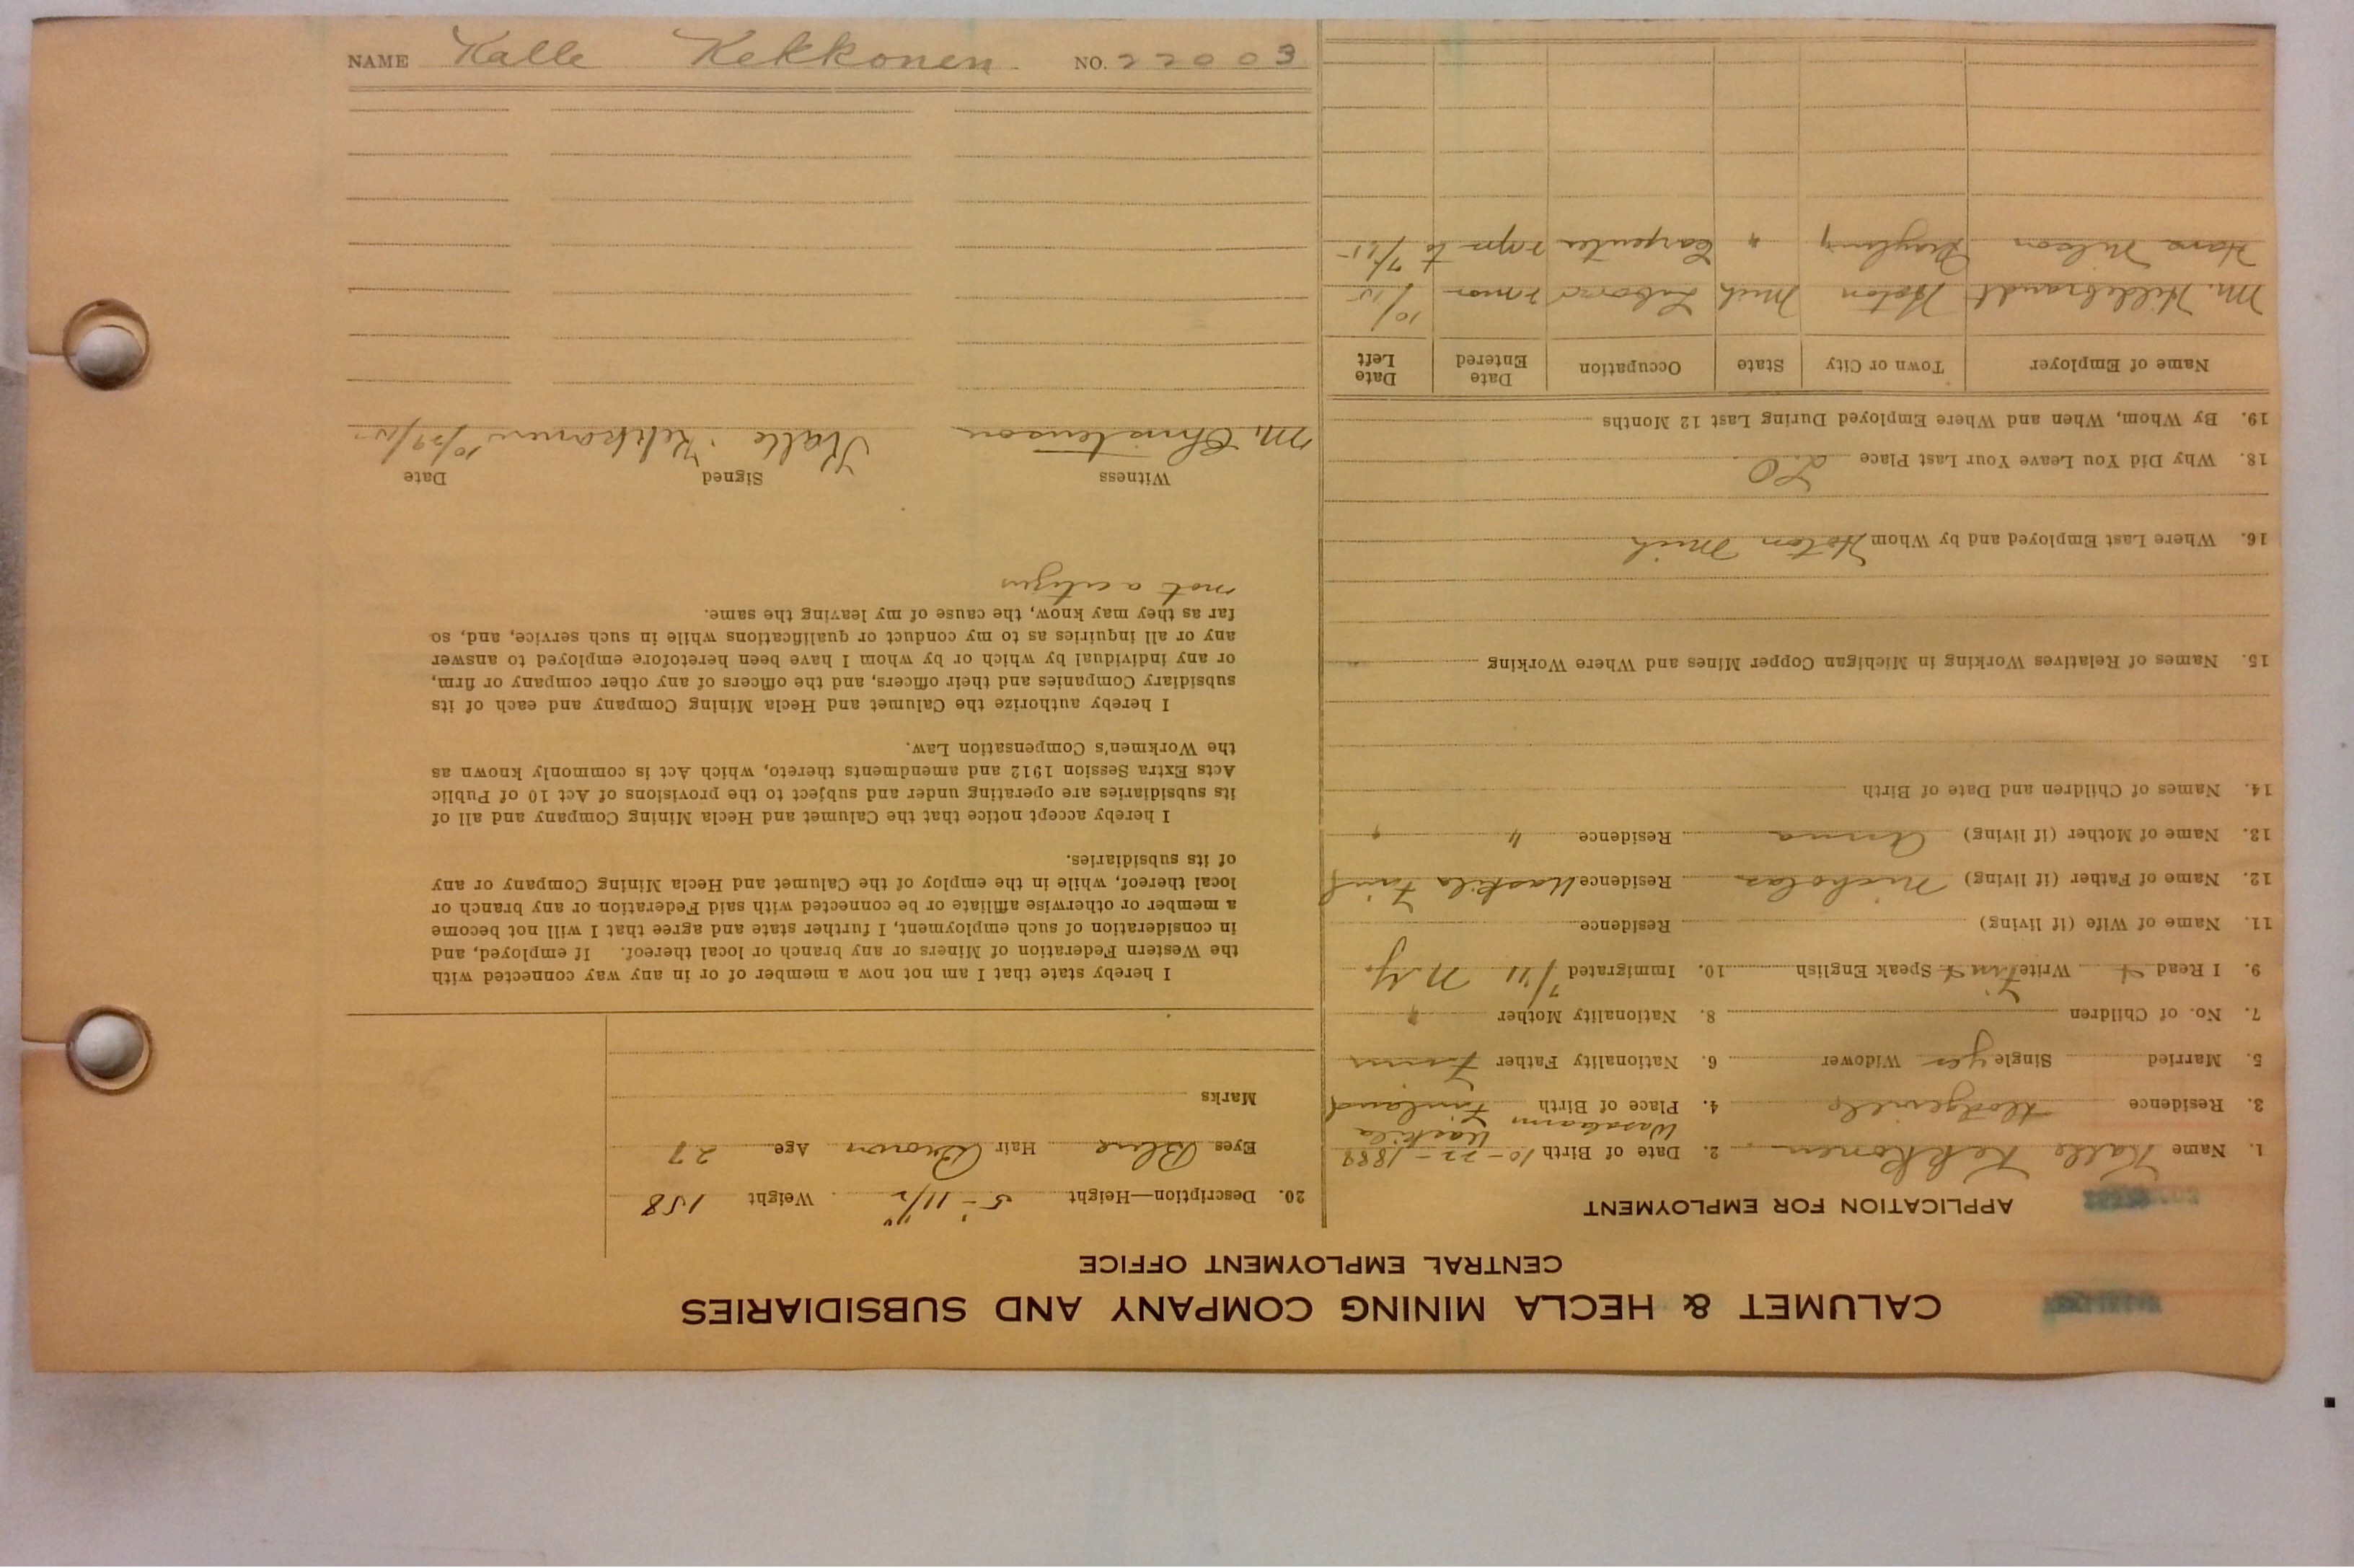 NAME Kalle Kekkonen NO. 22003
CALUMET & HECLA MINING COMPANY AND SUBSIDIARIES
CENTRAL EMPLOYMENT OFFICE
APPLICATION FOR EMPLOYMENT
1. Name Kalle Kekkonen 2. Date of Birth 10-22-1888
Wasalaani Uaskila
3. Residence 4. Place of Birth Finland
5. Married Single yes Widower 6. Nationality Father Finn
7. No. of Children 8. Nationality Mother "
9. I Read + Write Finn + Speak English 10. Immigrated 7/11 N.Y.
11. Name of Wife (if living) Residence
12. Name of Father (if living) Nicholas Residence Uaskila Finl
13. Name of Mother (if living) Anna Residence " "
14. Names of Children and Date of Birth
15. Names of Relatives Working in Michigan Copper Mines and Where Working
16. Where Last Employed and by Whom Hoton Mich
18. Why Did You Leave Your Last Place LO
19. By Whom, When and Where Employed During Last 12 Months
Name of Employer Town or City State Occupation Date Entered Date Left
M. Hildebrandt Hoton Mich Laborer 2 mos 10/15
Hans Nelson " Carpenter 2 mos to 7/15
20. Description—Height 5'-11 1/2" Weight 158
Eyes Blue Hair Brown Age 27
Marks
I hereby state that I am not now a member of or in any way connected with
the Western Federation of Miners or any branch or local thereof. If employed, and
in consideration of such employment, I further state and agree that I will not become
a member or otherwise affiliate or be connected with said Federation or any branch or
local thereof, while in the employ of the Calumet and Hecla Mining Company or any
of its subsidiaries.
I hereby accept notice that the Calumet and Hecla Mining Company and all of
its subsidiaries are operating under and subject to the provisions of Act 10 of Public
Acts Extra Session 1912 and amendments thereto, which Act is commonly known as
the Workmen's Compensation Law.
I hereby authorize the Calumet and Hecla Mining Company and each of its
subsidiary Companies and their officers, and the officers of any other company or firm,
or any individual by which or by whom I have been heretofore employed to answer
any or all inquiries as to my conduct or qualifications while in such service, and, so
far as they may know, the cause of my leaving the same.
not a citizen
Witness Signed Date
M. Christenson Kalle Kekkonen 10/29/15